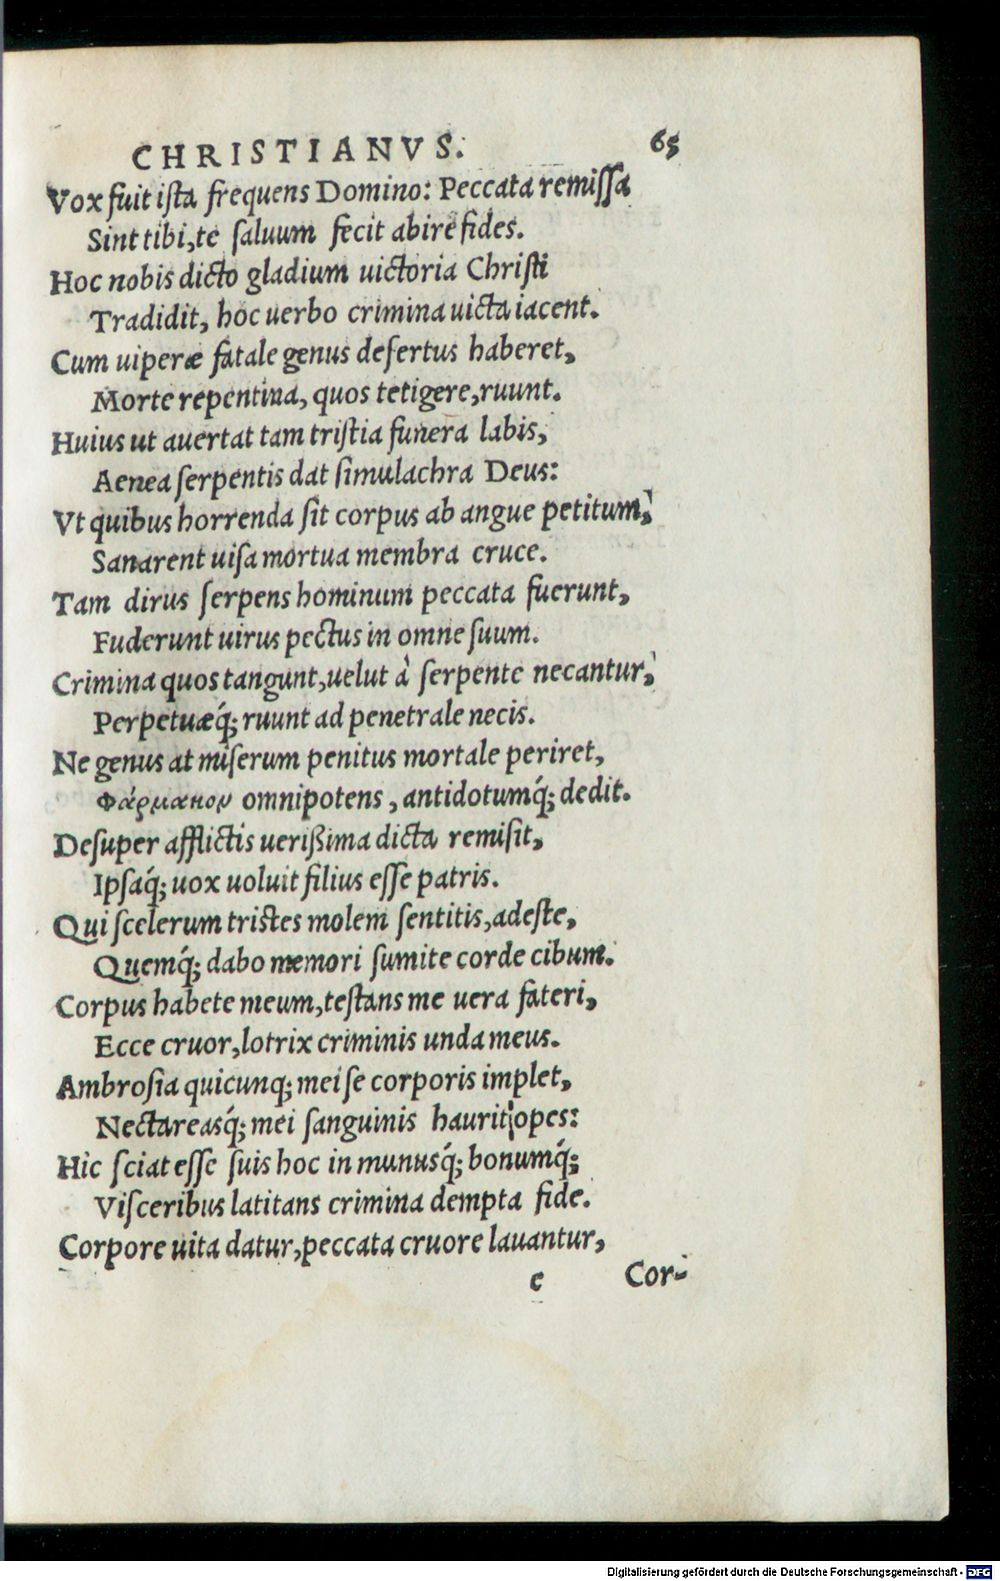 CHRISTIANVS. 65
Vox fuit ista frequens Domino: Peccata remissa
Sint tibi, te saluum fecit abire fides.
Hoc nobis dicto gladium uictoria Christi
Tradidit, hoc uerbo crimina uicta iacent.
Cum uiperæ fatale genus desertus haberet,
Morte repentina, quos tetigere, ruunt.
Huius ut auertat tam tristia funera labis,
Aenea serpentis dat simulachra Deus:
Vt quibus horrenda sit corpus ab angue petitum,
Sanarent uisa mortua membra cruce.
Tam dirus serpens hominum peccata fuerunt,
Fuderunt uirus pectus in omne suum.
Crimina quos tangunt, uelut à serpente necantur,
Perpetuæq́; ruunt ad penetrale necis.
Ne genus at miserum penitus mortale periret,
Φάρμακον omnipotens, antidotumq́; dedit.
Desuper afflictis uerißima dicta remisit,
Ipsaq́; uox uoluit filius esse patris.
Qui scelerum tristes molem sentitis, adeste,
Quemq́; dabo memori sumite corde cibum.
Corpus habete meum, testans me uera fateri,
Ecce cruor, lotrix criminis unda meus.
Ambrosia quicunq; mei se corporis implet,
Nectareasq́; mei sanguinis haurit opes:
Hic sciat esse suis hoc in munusq́; bonumq́;
Visceribus latitans crimina dempta fide.
Corpore uita datur, peccata cruore lauantur,
e Cor-
Digitalisierung gefördert durch die Deutsche Forschungsgemeinschaft - DFG